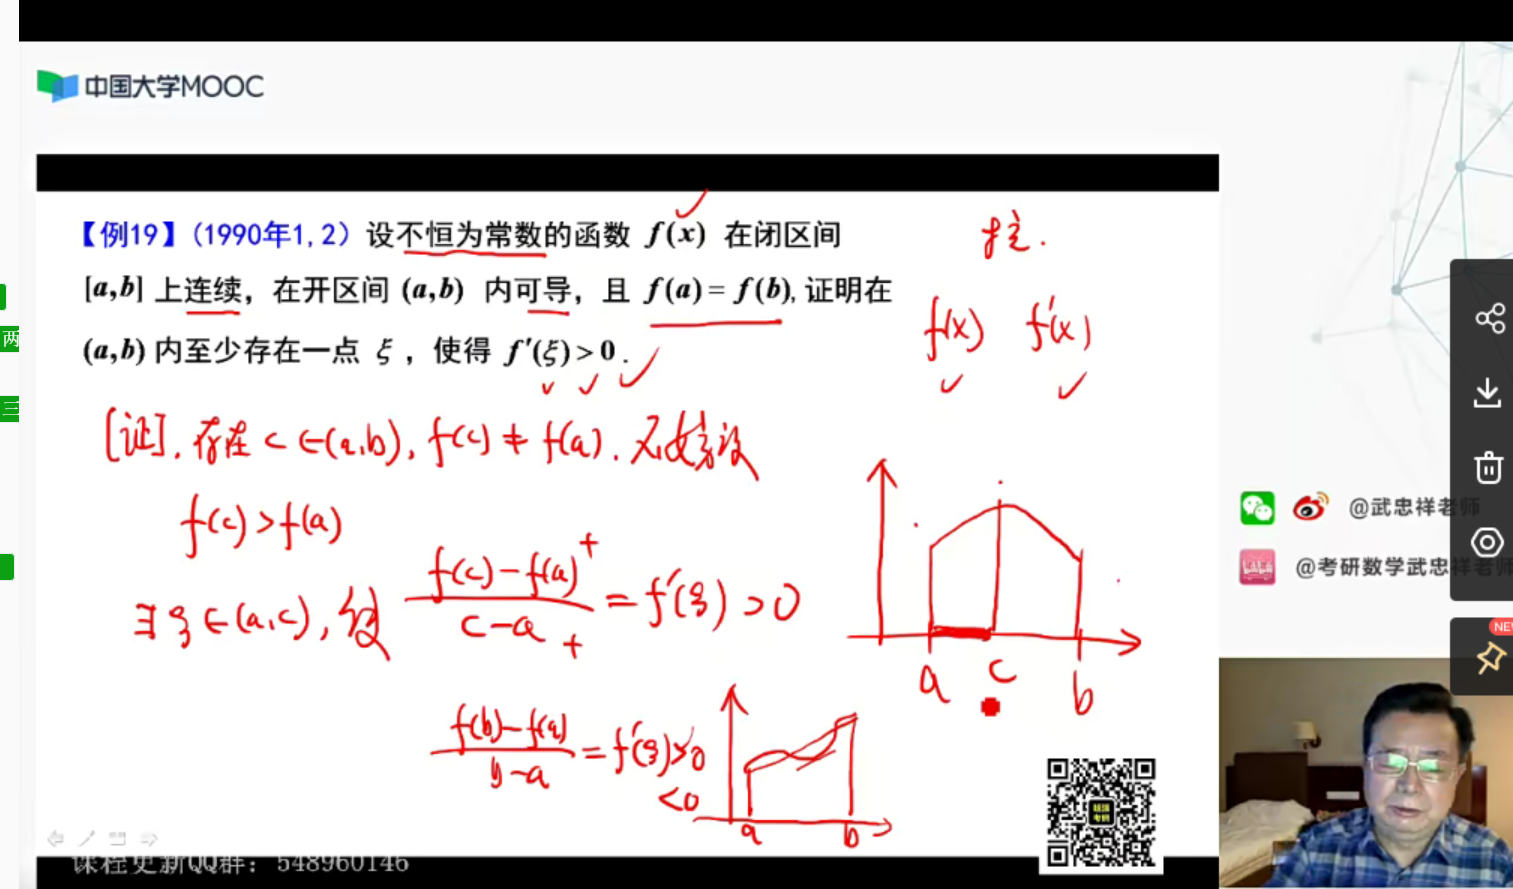 中国大学MOOC
【例19】(1990年1,2) 设不恒为常数的函数 f(x) 在闭区间
[a,b] 上连续，在开区间 (a,b) 内可导，且 f(a) = f(b), 证明在
(a,b) 内至少存在一点 ξ ，使得 f′(ξ) > 0 .
注.
f(x) f′(x)
[证]. 存在 c∈(a,b), f(c) ≠ f(a). 不妨设
f(c) > f(a)
∃ξ∈(a,c), 使 (f(c)-f(a))/(c-a) = f′(ξ) > 0
+
+
a c b
(f(b)-f(a))/(b-a) = f′(ξ) > 0
<0
a b
@武忠祥老师
@考研数学武忠祥老师
NEW
两
三
课程更新QQ群：548960146